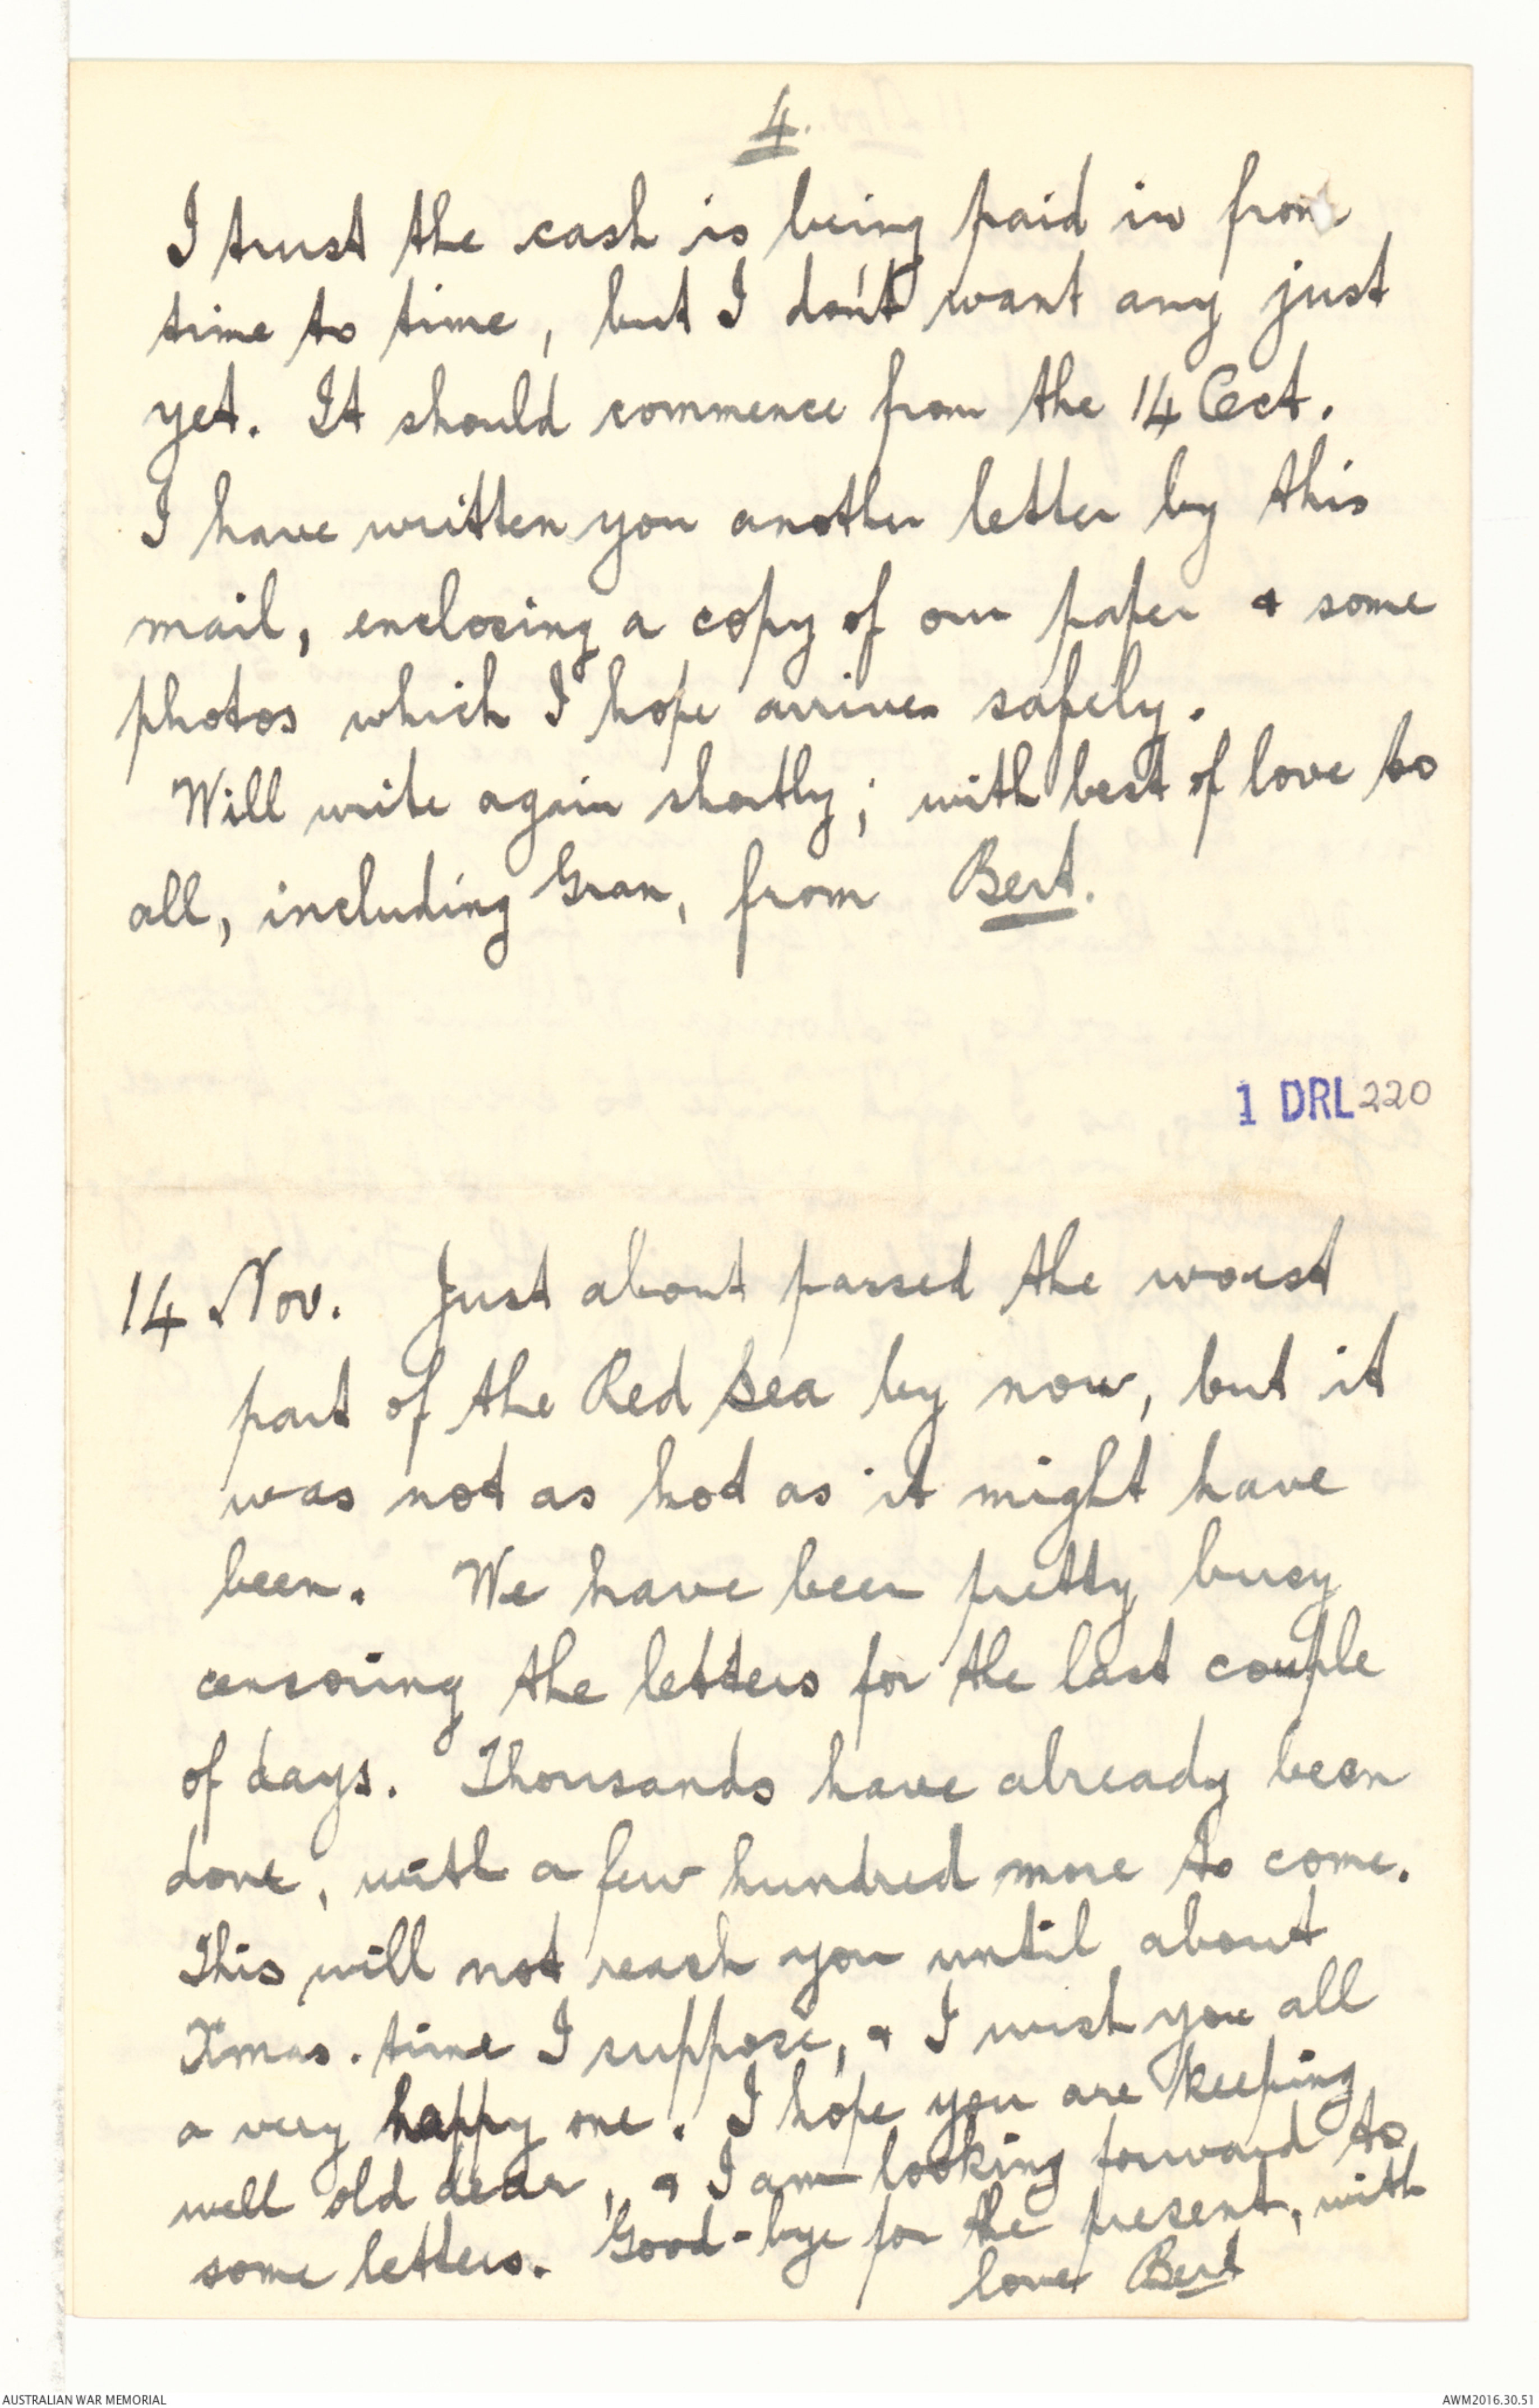 4.
I trust the cash is being paid in from
time to time, but I don't want any just
yet. It should commence from the 14 Oct.
I have written you another letter by this
mail, enclosing a copy of our paper & some
photos which I hope arrives safely.
Will write again shortly; with best of love to
all, including Gran, from Bert.
1 DRL 220
14 Nov. Just about passed the worst
part of the Red Sea by now, but it
was not as hot as it might have
been. We have been pretty busy
censoring the letters for the last couple
of days. Thousands have already been
done, with a few hundred more to come.
This will not reach you until about
Xmas. time I suppose, & I wish you all
a very happy one. I hope you are keeping
well old dear, & I am looking forward to
some letters. Good-bye for the present, with
love Bert
AUSTRALIAN WAR MEMORIAL
AWM2016.30.51